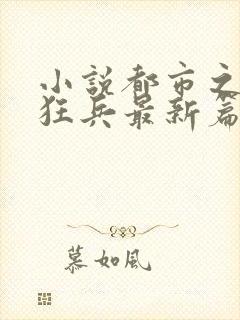 小說都市之
狂兵最新篇
慕如風